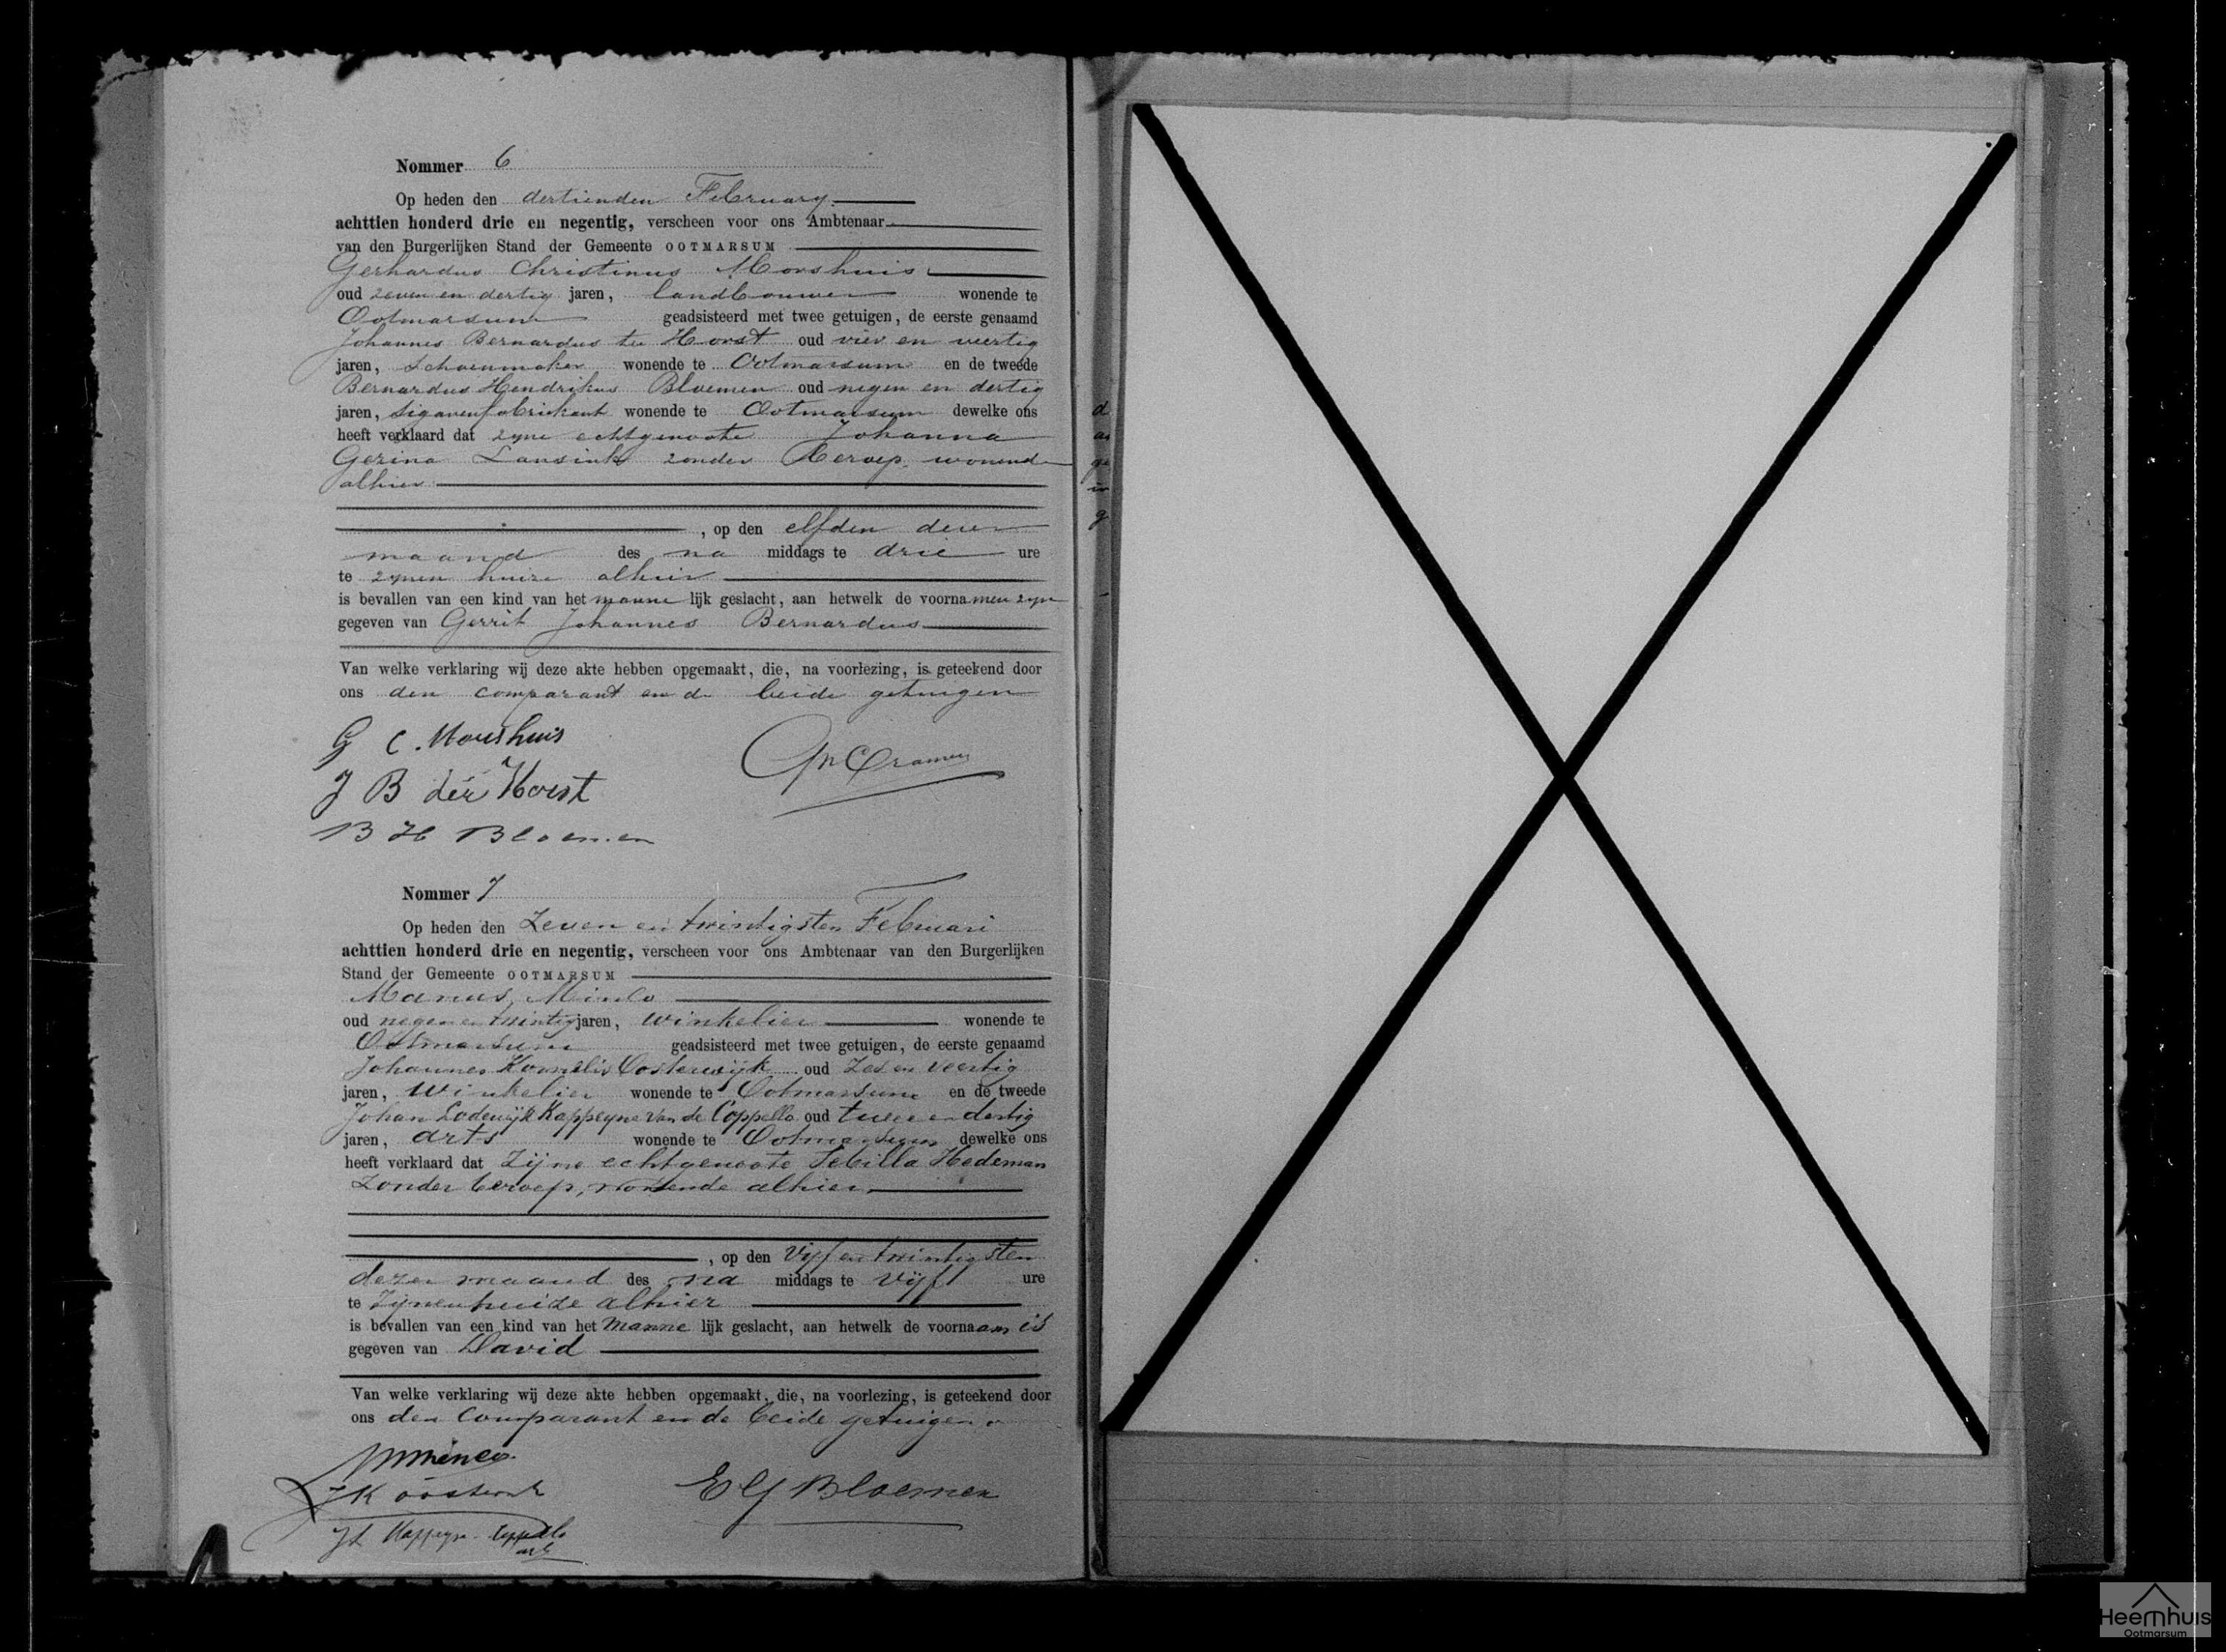 Nommer 6
Op heden den dertienden February
achttien honderd drie en negentig, verscheen voor ons Ambtenaar
van den Burgerlijken Stand der Gemeente OOTMARSUM
Gerhardus Christinus Morshuis
oud zeven en dertig jaren, landbouwer wonende te
Ootmarsum geadsisteerd met twee getuigen, de eerste genaamd
Johannes Bernardus ter Horst oud vier en veertig
jaren, Schoenmaker wonende te Ootmarsum en de tweede
Bernardus Hendrikus Bloemen oud negen en dertig
jaren, sigarenfabrikant wonende te Ootmarsum dewelke ons
heeft verklaard dat zyne echtgenoote Johanna
Gezina Lansink zonder Beroep wonende
alhier
, op den elfden dezer
maand des na middags te drie ure
te zynen huize alhier
is bevallen van een kind van het manne lijk geslacht, aan hetwelk de voornamen zyn
gegeven van Gerrit Johannes Bernardus
Van welke verklaring wij deze akte hebben opgemaakt, die, na voorlezing, is geteekend door
ons den comparant en de beide getuigen
G C. Morshuis
J B ter Horst
B H Bloemen
Cramer
Nommer 7
Op heden den Zeven en twintigsten Februari
achttien honderd drie en negentig, verscheen voor ons Ambtenaar van den Burgerlijken
Stand der Gemeente OOTMARSUM
Manus Minco
oud negen en twintig jaren, winkelier wonende te
Ootmarsum geadsisteerd met twee getuigen, de eerste genaamd
Johannes Kornelis Oosterwijk oud Zes en veertig
jaren, Winkelier wonende te Ootmarsum en de tweede
Johan Lodewijk Kappeyne van de Coppello oud twee en dertig
jaren, arts wonende te Ootmarsum dewelke ons
heeft verklaard dat Zijne echtgenoote Sebilla Hedeman
Zonder beroep, wonende alhier,
, op den Vijf en twintigsten
dezer maand des na middags te vijf ure
te Zijnen huize alhier
is bevallen van een kind van het manne lijk geslacht, aan hetwelk de voornaam is
gegeven van David
Van welke verklaring wij deze akte hebben opgemaakt, die, na voorlezing, is geteekend door
ons den Comparant en de beide getuigen
M Minco
J K Oosterwijk
E G Bloemen
JL Kappeyne Coppello
arts
Heemhuis
Ootmarsum